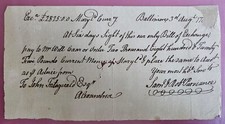 Exc. £ 2825.00 Maryd Curry Baltimore 3d Augt 17
At Six days Sight of this our only Bill of Exchange
pay to Mr Will or order Two Thousand eight hundred & Twenty
Two Pounds Current Money of Maryld & place the same to acct
as p Advice from Your most Obt Servts
To John Fitzgerald Esqr Saml & Robt Purviance
Alexandria